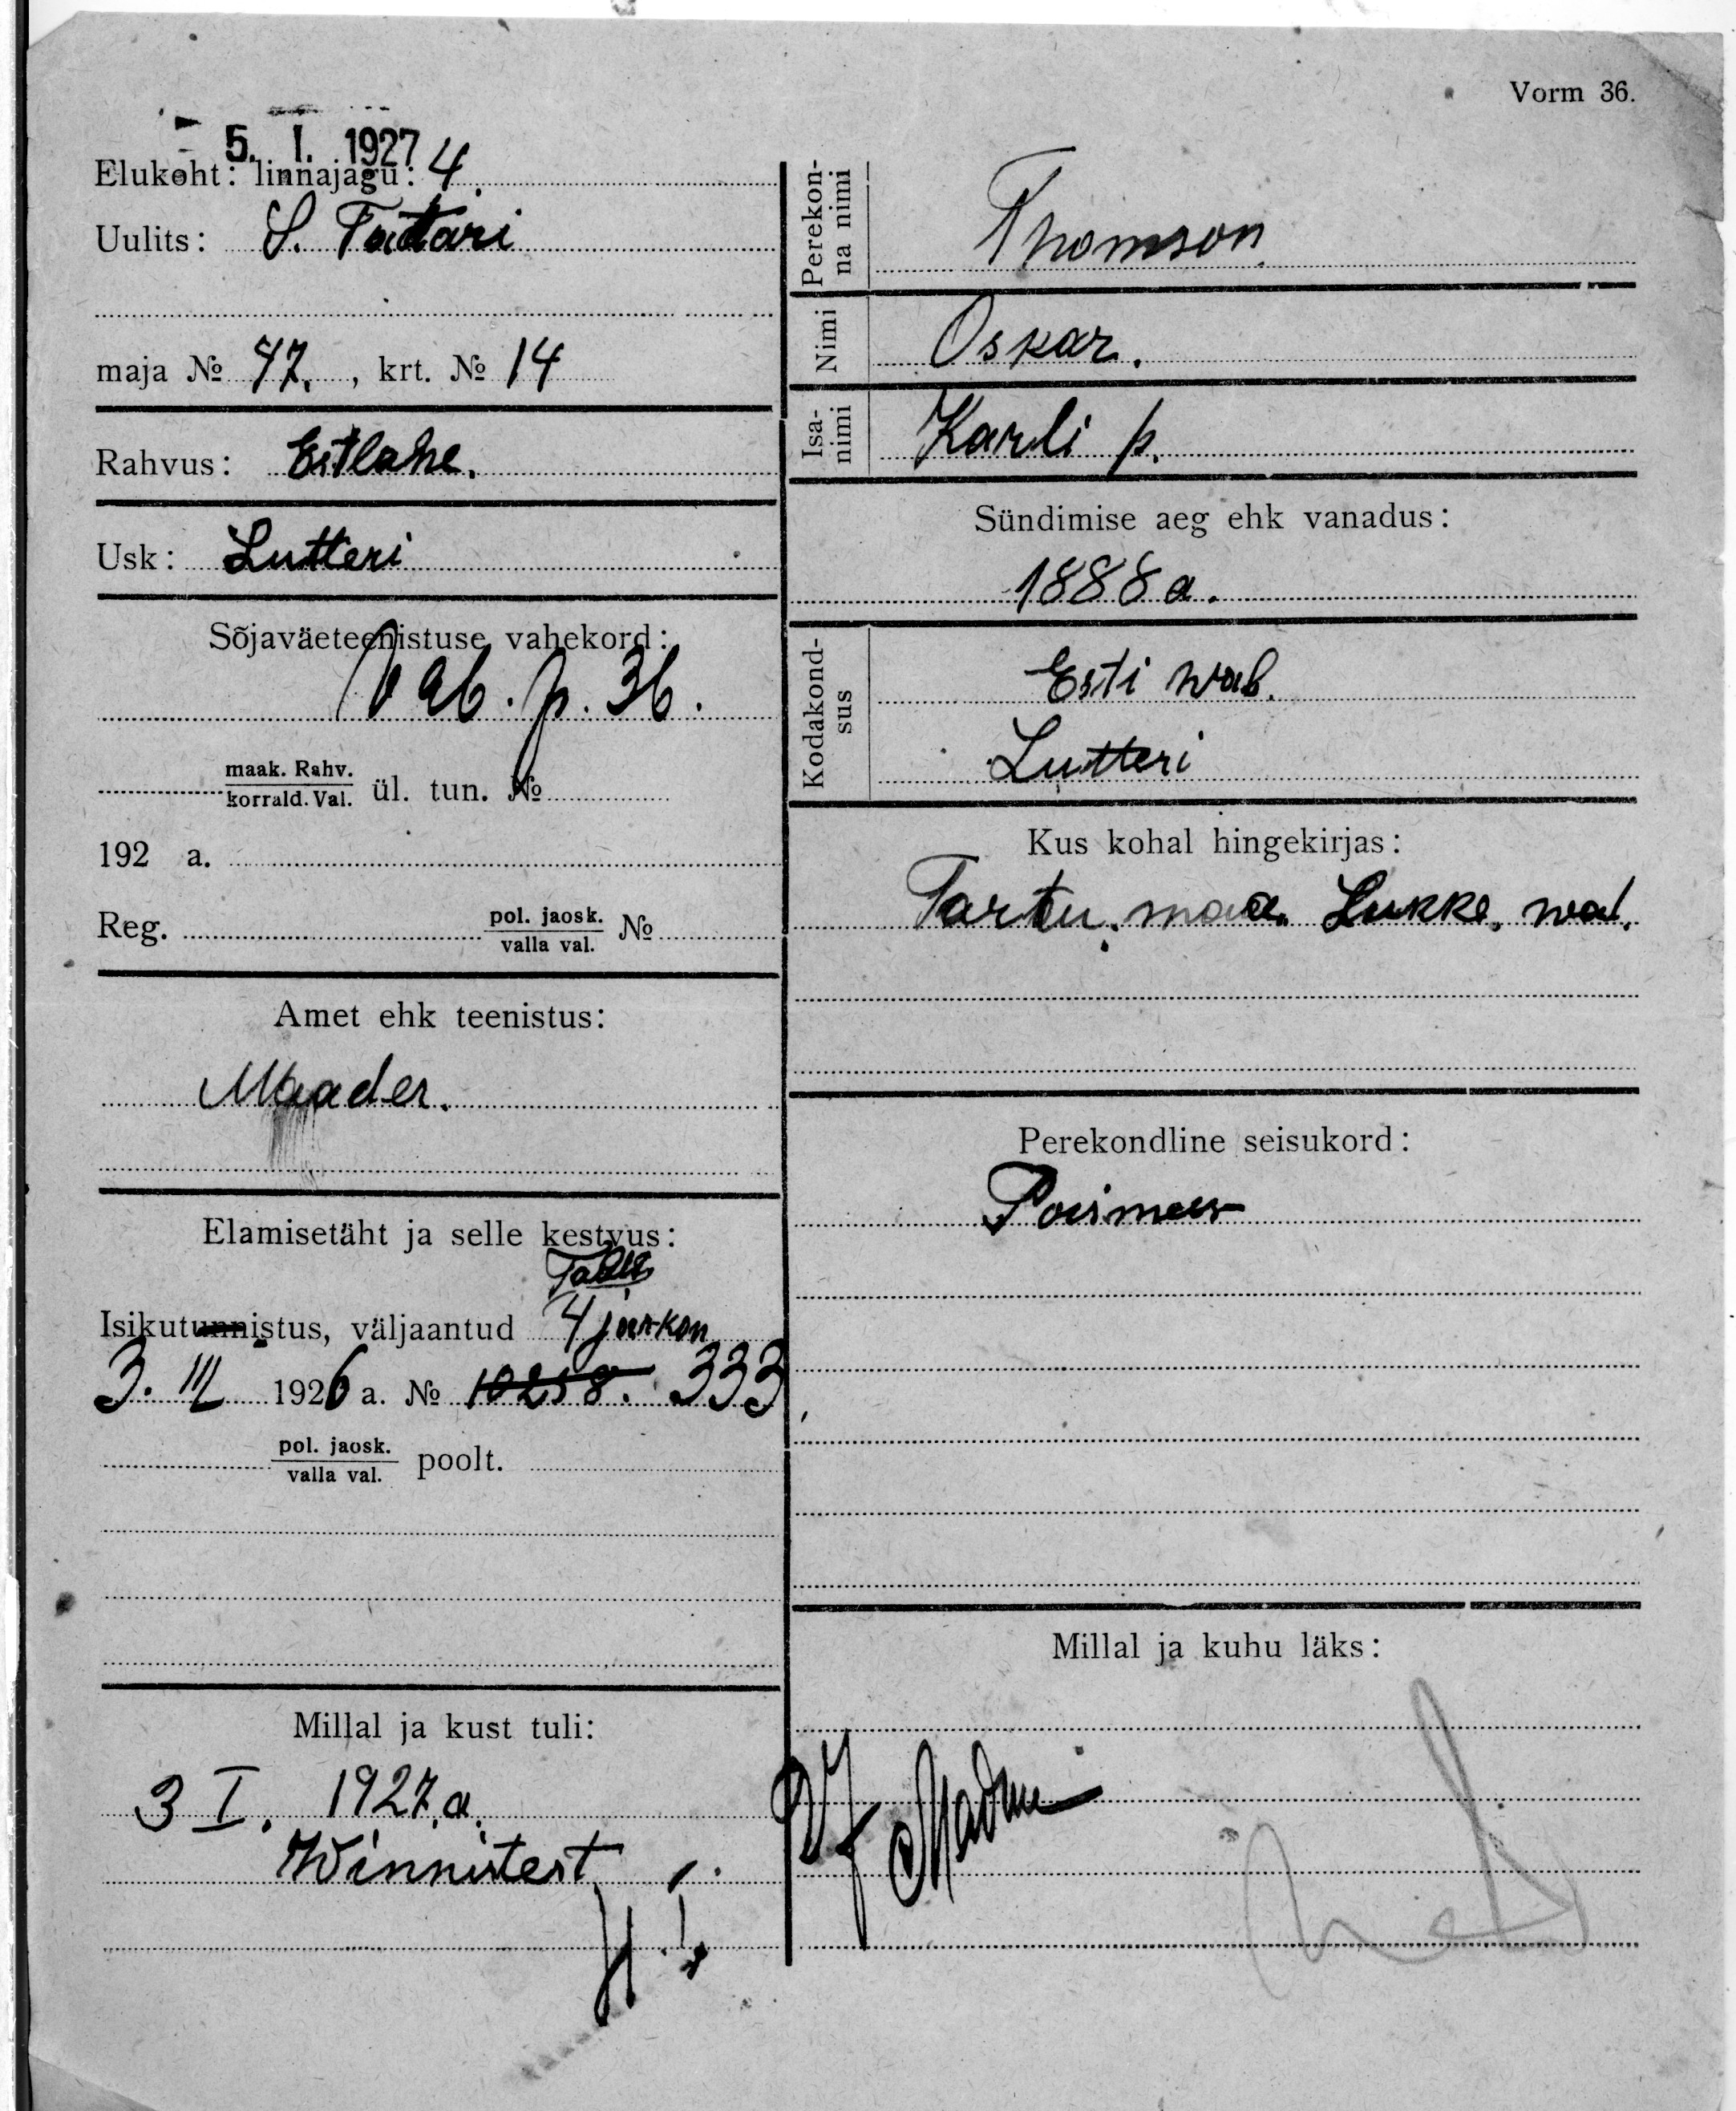 Vorm 36.
5. I. 1927
Elukoht: linnajagu: 4.
Uulits: S. Tatari
maja № 47., krt. № 14
Rahvus: Estlane.
Usk: Lutteri
Sõjaväeteenistuse vahekord:
Vab. p. 36.
maak. Rahv.
korrald. Val. ül. tun. №
192 a.
Reg. pol. jaosk.
valla val. №
Amet ehk teenistus:
Maader.
Elamisetäht ja selle kestvus:
Isikutunnistus, väljaantud 4 jaoskon
3. III 1926 a. № 10258. 333
pol. jaosk.
valla val. poolt.
Millal ja kust tuli:
3 I. 1927.a.
Winnistest
Perekon-
na nimi Thomson.
Nimi Oskar.
Isa-
nimi Karli p.
Sündimise aeg ehk vanadus:
1888 a.
Kodakond-
sus Esti wab.
Lutteri
Kus kohal hingekirjas:
Tartu. maa. Lukke. wal.
Perekondline seisukord:
Poismees
Millal ja kuhu läks: